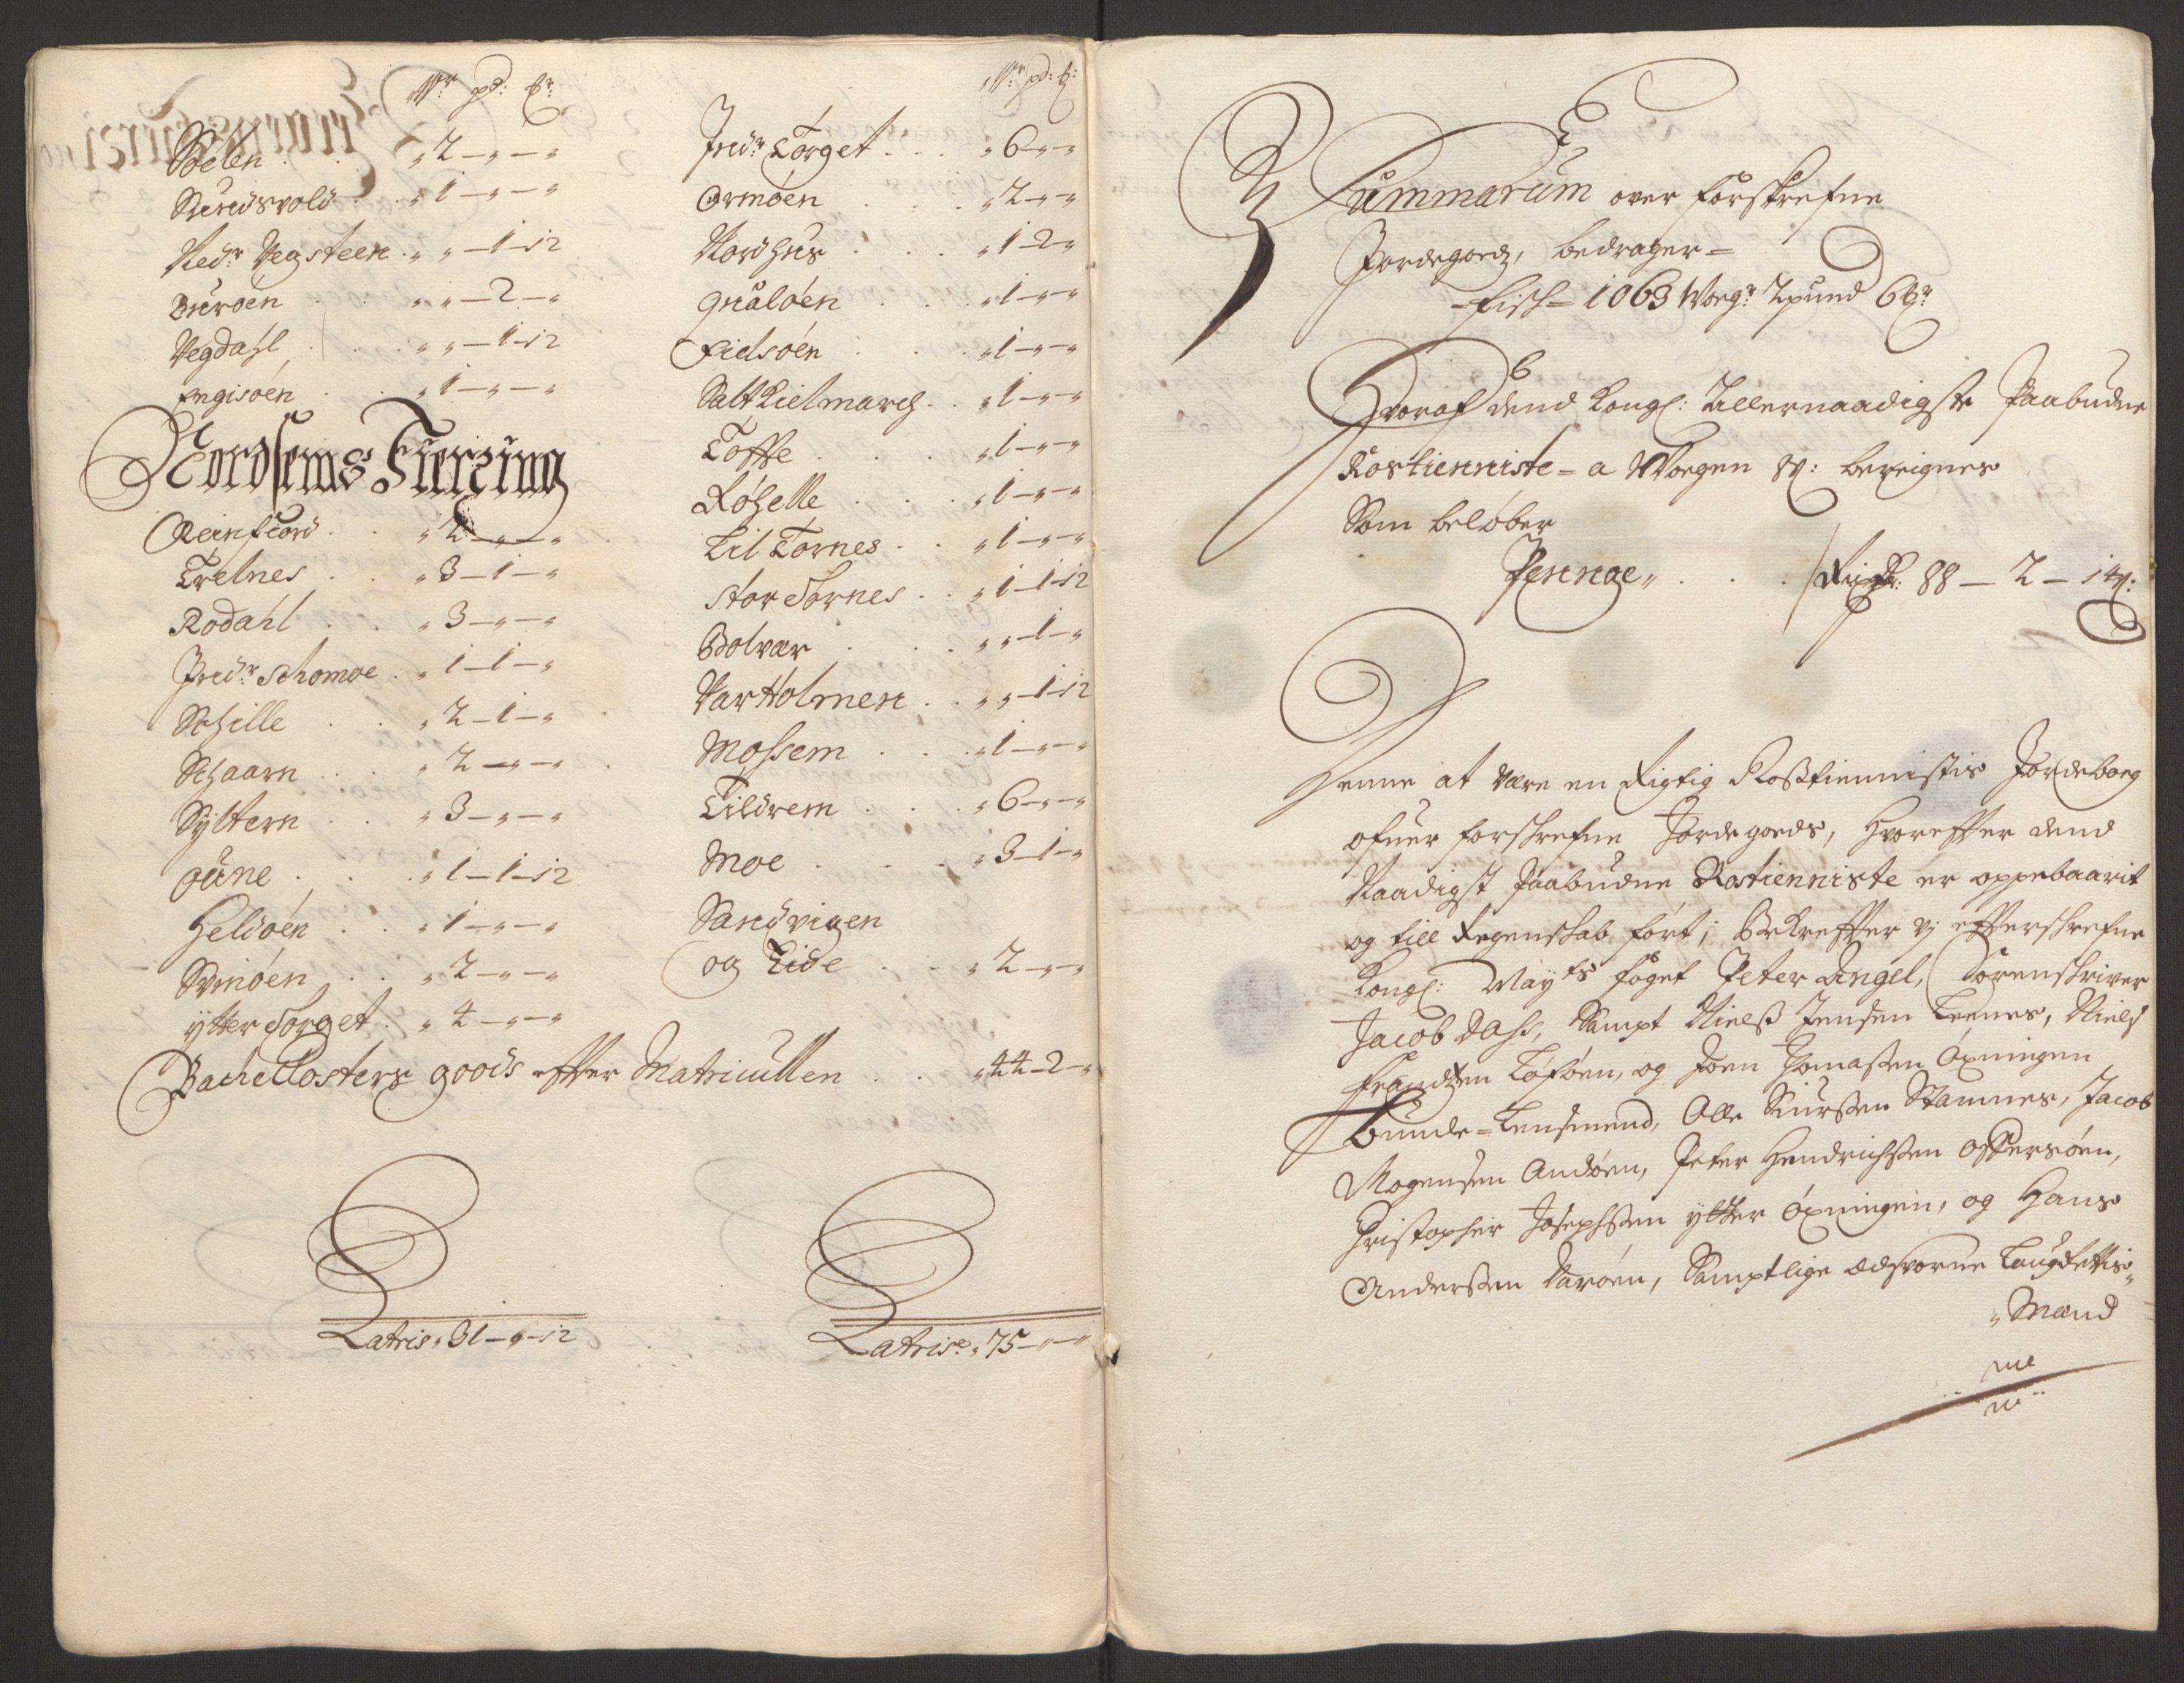 Wr pd: br:
Soelen . . „ 2 – „ – „
Rurdsvold . . „ 1 – „ – „
Nedr Vegsteen . „ „ – 1 – 12
Buroen . . „ „ – 2 – „
Vegdahl . . „ „ – 1 – 12
Engisøen . . „ 1 – „ – „
Nordsems Fierzing
Reinfiord . . „ 2 – „ – „
Trelnes . . „ 3 – 1 – „
Rodahl . . „ 3 – „ – „
Indr: Schomoe . „ 1 – 1 – „
Schille . . „ 2 – 1 – „
Schaarn . . „ 2 – „ – „
Syltern . . „ 3 – „ – „
Gune . . „ 1 – 1 – 12
Heldøen . . „ 1 – „ – „
Svinøen . . „ 2 – „ – „
ytter Torget . „ 4 – „ – „
Bache Closters goods effter Matricullen . . „ 44 – 2 – „
Latris „ 31 – „ – 12
Wr: pd: b:
Indr: Torget . . . „ 6 – „ – „
Ormøen . . . „ 2 – „ – „
Nordhus . . . „ 1 – 2 – „
Gualøen . . . „ 1 – „ – „
Fielsøen . . . „ 1 – „ – „
Salt Kielmarch . . „ 1 – „ – „
Toffte . . . „ 1 – „ – „
Røhelle . . . „ 1 – „ – „
Lil Tornes . . „ 1 – „ – „
Stor Tornes . . „ 1 – 1 – 12
Bolvær . . . „ „ – 1 – „
Vartholmen . . „ „ – 1 – 12
Mossem . . . „ 1 – „ – „
Tildrem . . . „ 6 – „ – „
Moe . . . „ 3 – 1 – „
Sandvigen
og Eide . . „ 2 – „ – „
Latris: „ 75 – „ – „
Summarum over forskrefne
Jordegodz, bedrager =
– Fisch = 1063 Woegr 2 pund 6 br
Hvoraf dend Kongl: Allernaadigste Paabudne
Rostienniste = a Woegen 8 s: bereignes
Som beløber
Penge „ . . . Rixdr: 88 – 2 – 14 s:
Denne at være en Rigtig Rosstiennistis Jordeboeg
ofuer forskrefne Jordegoeds, hvoreffter dend
Naadigst Paabudne Rostienniste er oppebaarit
og till Regenskab ført; Bekreffter vj effterskrefne
Kongl: Mayts foget Peter Angel, Sorenskriver
Jacob Dahs, Sampt Nielss Jensen Teenes, Niels
Frandtzen Toføen, og Joen Thomassen Øxningen
Bunde = Lensmend, Olle Siurssen Stamnes, Jacob
Mogensen Andøen, Peter Hendrichssen Offersøen,
Christopher Josephssen ytter Øxningen, og Hans
Anderssen Varøen, Samptlige Edsvorne Laugrettis
„ Mænd